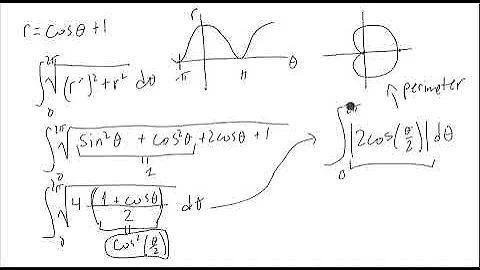 r = cosθ + 1
∫₀^2π √((r')² + r²) dθ
∫₀^2π √(sin²θ + cos²θ + 2cosθ + 1)
1
∫₀^2π √(4 (1 + cosθ)/2) dθ
cos²(θ/2)
r
-π π θ
perimeter
∫₀^2π |2cos(θ/2)| dθ